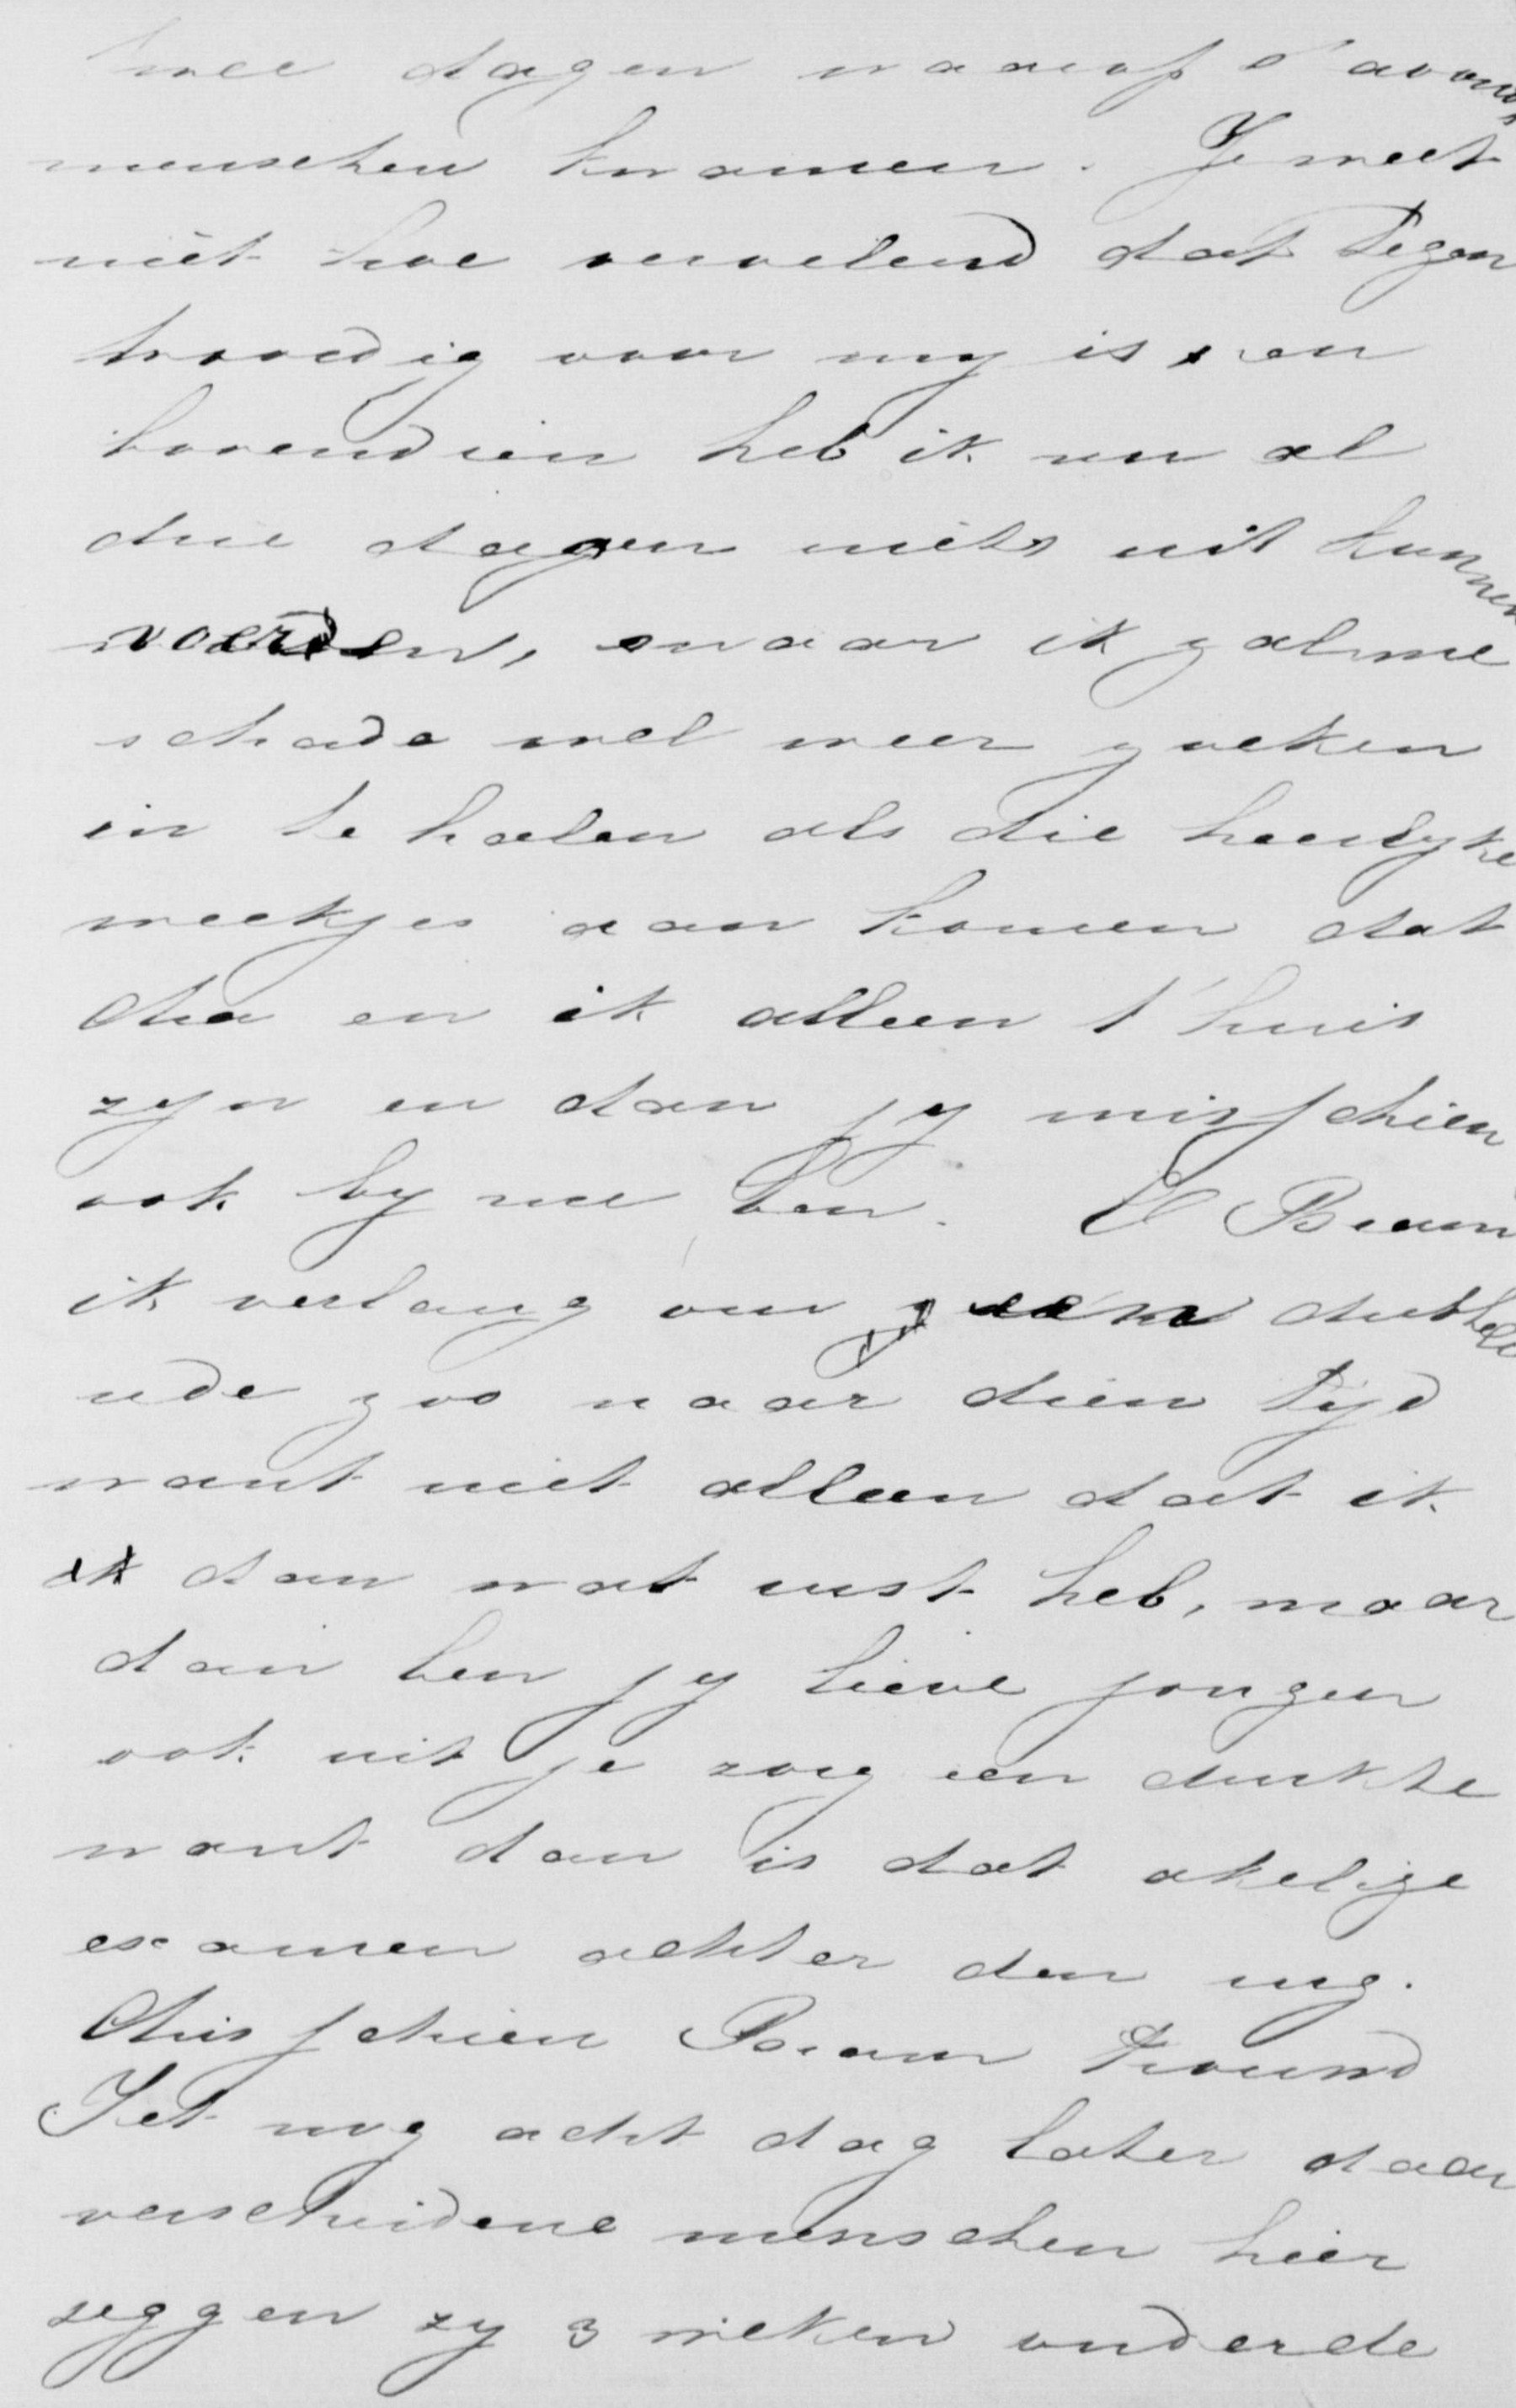 twee dagen waarop s'avonds
menschen kwamen. Je weet
niet hoe vervelend dat tegen
woordig voor my is en
bovendien heb ik nu al
drie dagen niets uit kunnen
voeren, maar ik zal me
schade wel weer zoeken
in te halen als die heerlyke
weekjes aan komen dat
Ma en ik alleen t'huis
zyn en dan jy misschien
ook by me ben. O Bram
ik verlang om dubbele
rede zoo naar dien tyd
want niet alleen dat ik
ik dan wat rust heb, maar
dan ben jy lieve jongen
ook uit je zorg en drukte
want dan is dat akelige
examen achter den rug.
Misschien Bram trouwd
Jet nog acht dag later daar
verscheidene menschen hier
zeggen zy 3 weken onder de